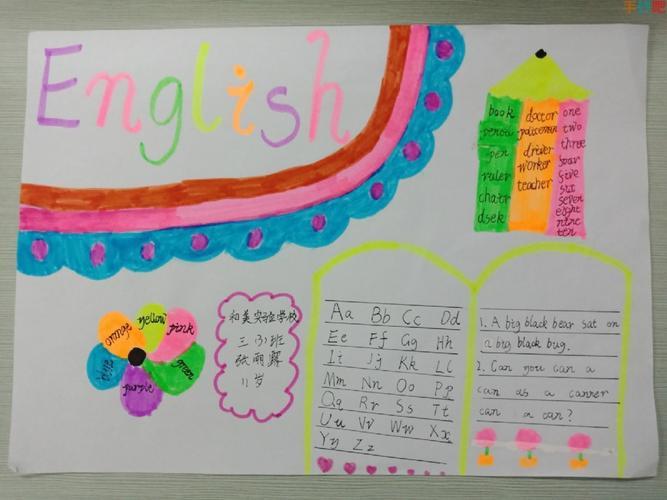 English
book
pen
ruler
chair
dsek
doctor
policeman
driver
worker
teacher
one
two
three
five
six
seven
eight
nine
ten
orange
yellow
pink
green
purple
blue
和美实验学校
三(3)班
11岁
Aa Bb Cc Dd
Ee Ff Gg Hh
Ii Jj Kk Ll
Mm Nn Oo Pp
Qq Rr Ss Tt
Uu Vv Ww Xx
Yy Zz
1. A big black bear sat on
a big black bug.
2. Can you can a
can as a canner
can a can?